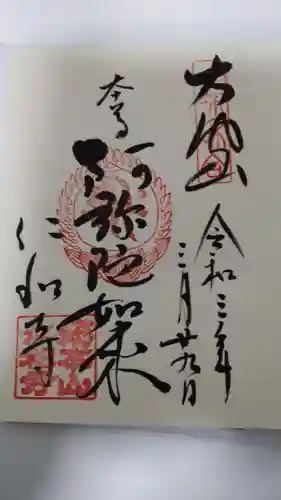 大内山
令和三年
三月廿九日
本尊
阿弥陀如来
仁和寺